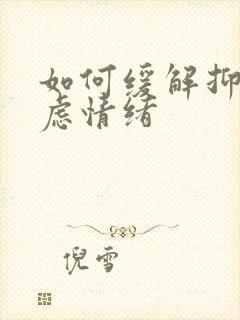 如何缓解抑
虑情绪
倪雪